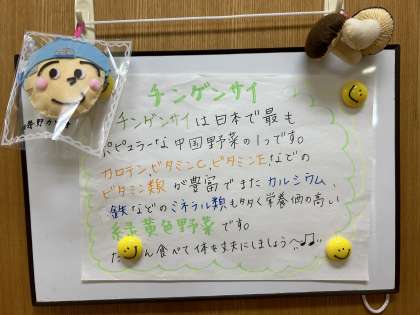 チンゲンサイ
チンゲンサイは日本で最も
ポピュラーな中国野菜の1つです。
カロテン、ビタミンC、ビタミンE、などの
ビタミン類が豊富でまたカルシウム、
鉄などのミネラル類も多く栄養価の高い
緑黄色野菜です。
ん食べて体を丈夫にしましょう